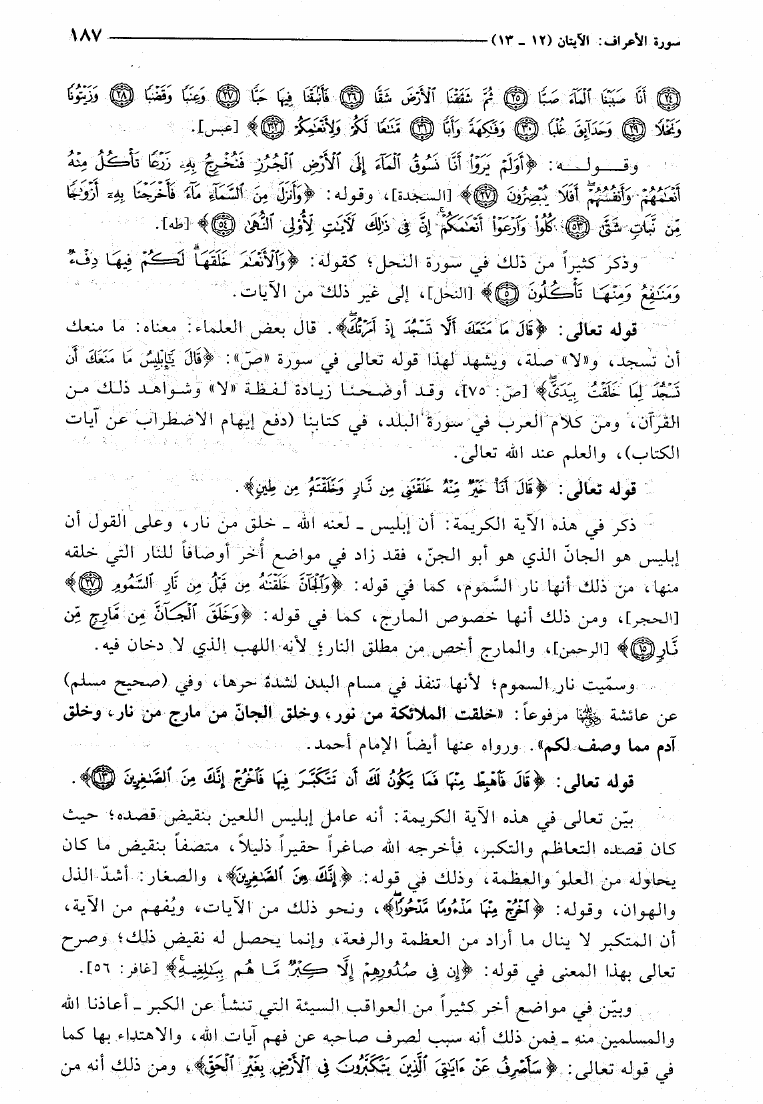 سورة الأعراف: الآيتان (١٢ ـ ١٣) ١٨٧
(٢٤) أَنَّا صَبَبْنَا الْمَاءَ صَبًّا (٢٥) ثُمَّ شَقَقْنَا الْأَرْضَ شَقًّا (٢٦) فَأَنْبَتْنَا فِيهَا حَبًّا (٢٧) وَعِنَبًا وَقَضْبًا (٢٨) وَزَيْتُونًا
وَنَخْلًا (٢٩) وَحَدَائِقَ غُلْبًا (٣٠) وَفَاكِهَةً وَأَبًّا (٣١) مَتَاعًا لَكُمْ وَلِأَنْعَامِكُمْ (٣٢)﴾ [عبس].
وقـولـه: ﴿أَوَلَمْ يَرَوْا أَنَّا نَسُوقُ الْمَاءَ إِلَى الْأَرْضِ الْجُرُزِ فَنُخْرِجُ بِهِ زَرْعًا تَأْكُلُ مِنْهُ
أَنْعَامُهُمْ وَأَنْفُسُهُمْ أَفَلَا يُبْصِرُونَ (٢٧)﴾ [السجدة]، وقوله: ﴿وَأَنْزَلَ مِنَ السَّمَاءِ مَاءً فَأَخْرَجْنَا بِهِ أَزْوَاجًا
مِنْ نَبَاتٍ شَتَّى (٥٣) كُلُوا وَارْعَوْا أَنْعَامَكُمْ إِنَّ فِي ذَلِكَ لَآيَاتٍ لِأُولِي النُّهَى (٥٤)﴾ [طه].
وذكر كثيراً من ذلك في سورة النحل؛ كقوله: ﴿وَالْأَنْعَامَ خَلَقَهَا لَكُمْ فِيهَا دِفْءٌ
وَمَنَافِعُ وَمِنْهَا تَأْكُلُونَ (٥)﴾ [النحل]، إلى غير ذلك من الآيات.
قوله تعالى: ﴿قَالَ مَا مَنَعَكَ أَلَّا تَسْجُدَ إِذْ أَمَرْتُكَ﴾. قال بعض العلماء: معناه: ما منعك
أن تسجد، و«لا» صلة، ويشهد لهذا قوله تعالى في سورة «صّ»: ﴿قَالَ يَا إِبْلِيسُ مَا مَنَعَكَ أَنْ
تَسْجُدَ لِمَا خَلَقْتُ بِيَدَيَّ﴾ [صّ: ٧٥]، وقد أوضحنا زيادة لفظة «لا» وشواهد ذلك من
القرآن، ومن كلام العرب في سورة البلد، في كتابنا (دفع إيهام الاضطراب عن آيات
الكتاب)، والعلم عند الله تعالى.
قوله تعالى: ﴿قَالَ أَنَا خَيْرٌ مِنْهُ خَلَقْتَنِي مِنْ نَارٍ وَخَلَقْتَهُ مِنْ طِينٍ﴾.
ذكر في هذه الآية الكريمة: أن إبليس ـ لعنه الله ـ خلق من نار، وعلى القول أن
إبليس هو الجانّ الذي هو أبو الجنّ، فقد زاد في مواضع أُخر أوصافاً للنار التي خلقه
منها، من ذلك أنها نار السَّموم، كما في قوله: ﴿وَالْجَانَّ خَلَقْنَاهُ مِنْ قَبْلُ مِنْ نَارِ السَّمُومِ (٢٧)﴾
[الحجر]، ومن ذلك أنها خصوص المارج، كما في قوله: ﴿وَخَلَقَ الْجَانَّ مِنْ مَارِجٍ مِنْ
نَارٍ (١٥)﴾ [الرحمن]، والمارج أخص من مطلق النار؛ لأنه اللهب الذي لا دخان فيه.
وسمّيت نار السموم؛ لأنها تنفذ في مسام البدن لشدة حرها، وفي (صحيح مسلم)
عن عائشة ﵂ مرفوعاً: «خلقت الملائكة من نور، وخلق الجانّ من مارج من نار، وخلق
آدم مما وصف لكم». ورواه عنها أيضاً الإمام أحمد.
قوله تعالى: ﴿قَالَ فَاهْبِطْ مِنْهَا فَمَا يَكُونُ لَكَ أَنْ تَتَكَبَّرَ فِيهَا فَاخْرُجْ إِنَّكَ مِنَ الصَّاغِرِينَ (١٣)﴾.
بيّن تعالى في هذه الآية الكريمة: أنه عامل إبليس اللعين بنقيض قصده؛ حيث
كان قصده التعاظم والتكبر، فأخرجه الله صاغراً حقيراً ذليلاً، متصفاً بنقيض ما كان
يحاوله من العلو والعظمة، وذلك في قوله: ﴿إِنَّكَ مِنَ الصَّاغِرِينَ﴾، والصغار: أشدّ الذل
والهوان، وقوله: ﴿اخْرُجْ مِنْهَا مَذْءُومًا مَدْحُورًا﴾، ونحو ذلك من الآيات، ويُفهم من الآية،
أن المتكبر لا ينال ما أراد من العظمة والرفعة، وإنما يحصل له نقيض ذلك؛ وصرح
تعالى بهذا المعنى في قوله: ﴿إِنْ فِي صُدُورِهِمْ إِلَّا كِبْرٌ مَا هُمْ بِبَالِغِيهِ﴾ [غافر: ٥٦].
وبيّن في مواضع أخر كثيراً من العواقب السيئة التي تنشأ عن الكبر ـ أعاذنا الله
والمسلمين منه ـ فمن ذلك أنه سبب لصرف صاحبه عن فهم آيات الله، والاهتداء بها كما
في قوله تعالى: ﴿سَأَصْرِفُ عَنْ آيَاتِيَ الَّذِينَ يَتَكَبَّرُونَ فِي الْأَرْضِ بِغَيْرِ الْحَقِّ﴾، ومن ذلك أنه من